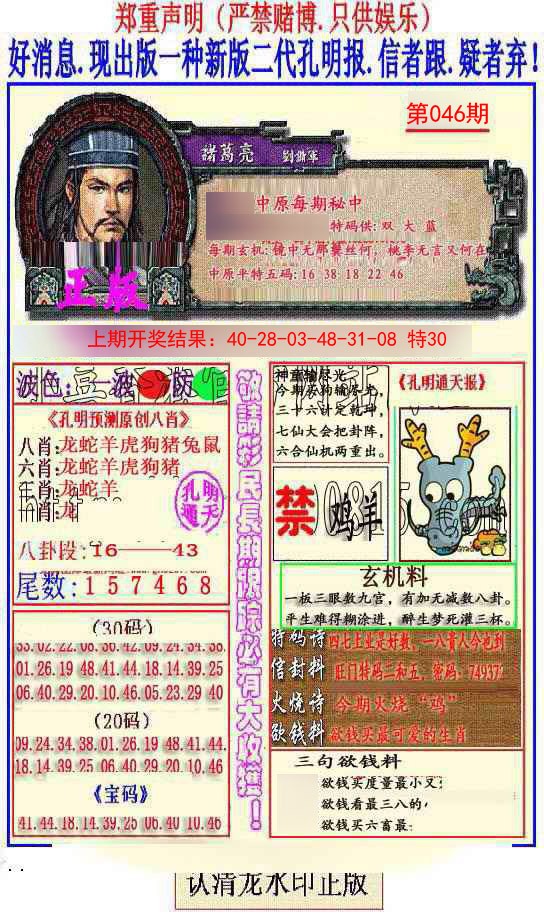 郑重声明（严禁赌博.只供娱乐）
好消息.现出版一种新版二代孔明报.信者跟.疑者弃!
第046期
諸葛亮
中原每期秘中
特码供:双 大 蓝
每期玄机:镜中无那鬓丝何，桃李无言又何在
中原平特五码:16 38 18 22 46
正版
上期开奖结果：40-28-03-48-31-08 特30
波色：一波 防
《孔明预测原创八肖》
八肖:龙蛇羊虎狗猪兔鼠
六肖:龙蛇羊虎狗猪
肖:龙蛇羊
肖:龙
孔明
通天
八卦段:16——43
尾数:157468
敬請彩民長期跟踪必有大收獲！
今期苏狗输尽光，
三十六计定乾坤，
七仙大会把卦阵，
六合仙机两重出。
《孔明通天报》
禁 鸡羊
玄机料
一板三眼数九宫，有加无减数八卦。
平生难得糊涂进，醉生梦死灌三杯。
(30码)
33.02.22.08.30.42.09.24.34.38
01.26.19 48.41.44 18.14.39.25
06.40.29.20 10.46 05.23.29 40
(20码)
09.24.34.38.01.26.19 48.41.44.
18.14.39.25 06.40.29.20 10.46
《宝码》
41.44.18.14.39.25 06.40 10.46
特码诗 四七上坐是好数，一八贵人今也到
信封料 旺门特码二和五，密码：749372
火烧诗 今期火烧“鸡”
欲钱料 欲钱买最可爱的生肖
三句欲钱料
欲钱买度量最小又
欲钱看最三八的
欲钱买六畜最
认清龙水印正版